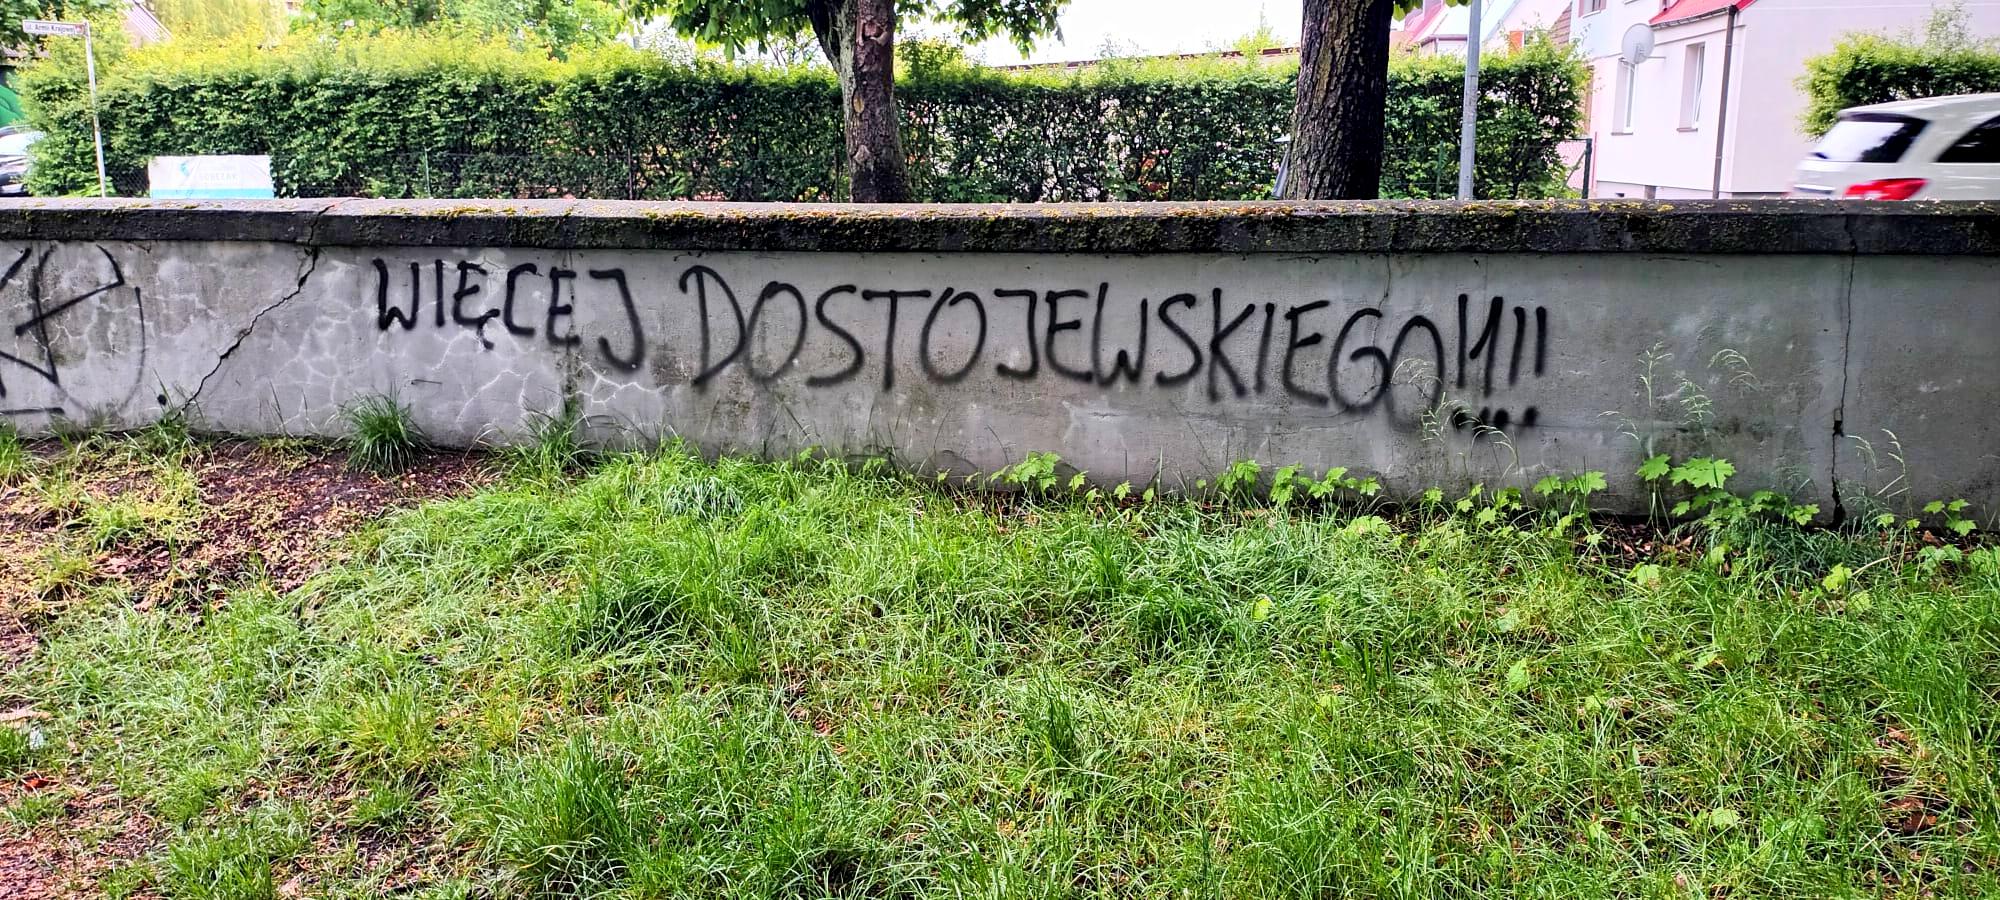 ul. Armii Krajowej
WIĘCEJ DOSTOJEWSKIEGO!!!!